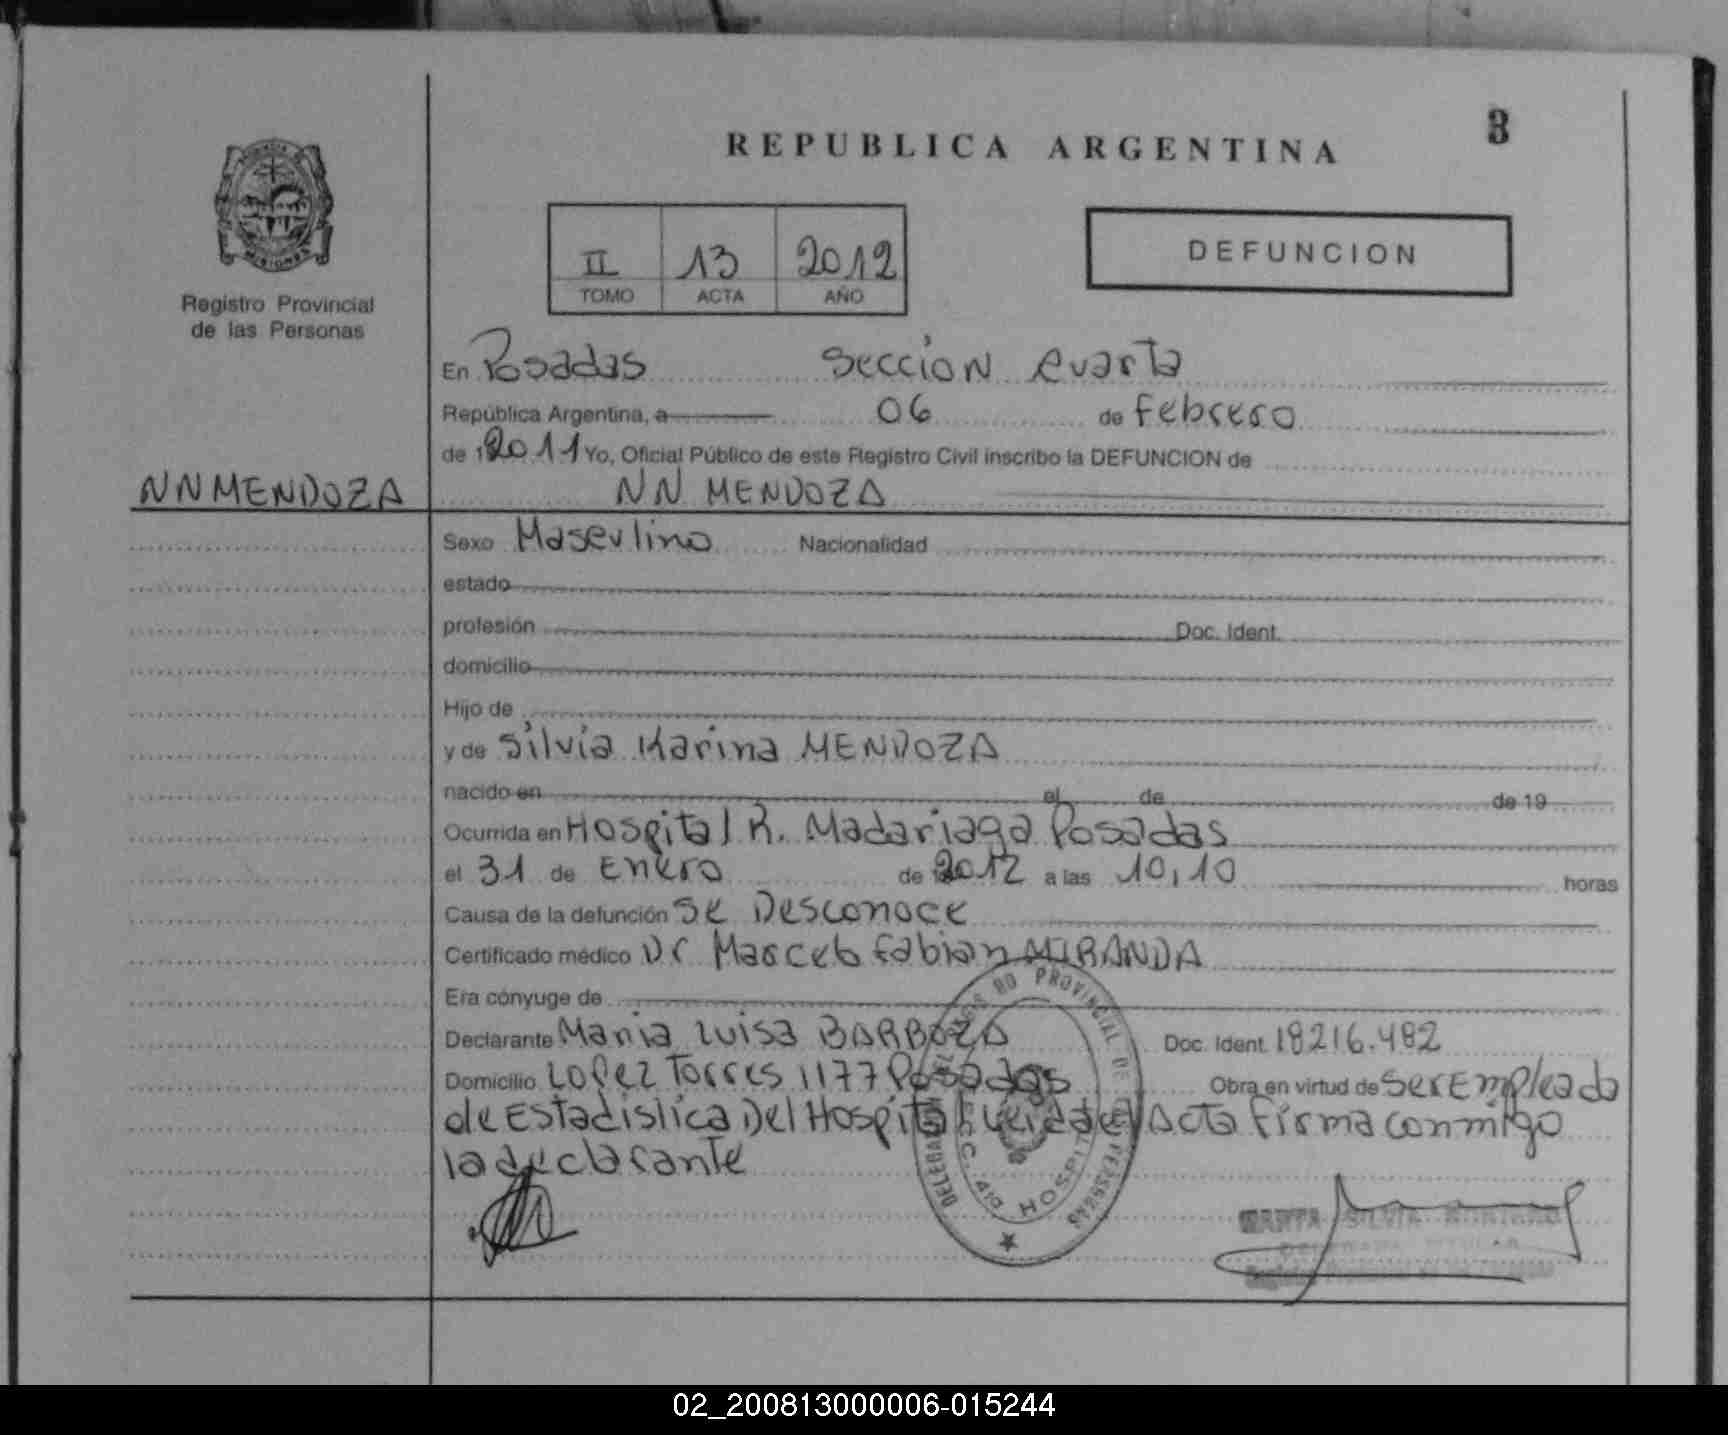 REPUBLICA ARGENTINA
3
II 13 2012
TOMO ACTA AÑO
DEFUNCION
MISIONES
Registro Provincial
de las Personas
En Posadas Seccion Cuarta
República Argentina, a 06 de Febrero
de 2011 Yo, Oficial Público de este Registro Civil inscribo la DEFUNCION de
NN MENDOZA NN MENDOZA
Sexo Masculino Nacionalidad
estado
profesión Doc. Ident.
domicilio
Hijo de
y de Silvia Karina MENDOZA
nacido en el de de 19
Ocurrida en Hospital R. Madariaga Posadas
el 31 de Enero de 2012 a las 10,10 horas
Causa de la defunción Se Desconoce
Certificado médico Dr Marcelo Fabian MIRANDA
Era cónyuge de
Declarante Maria Luisa BARBOZA Doc. Ident. 18216.482
Domicilio Lopez Torres 1177 Posadas Obra en virtud de ser Empleada
de Estadistica Del Hospital Leida el Acta Firma conmigo
la declarante
PROVINCIAL DE
SECC. 4ta HOSPITAL
SILVIA
02_200813000006-015244